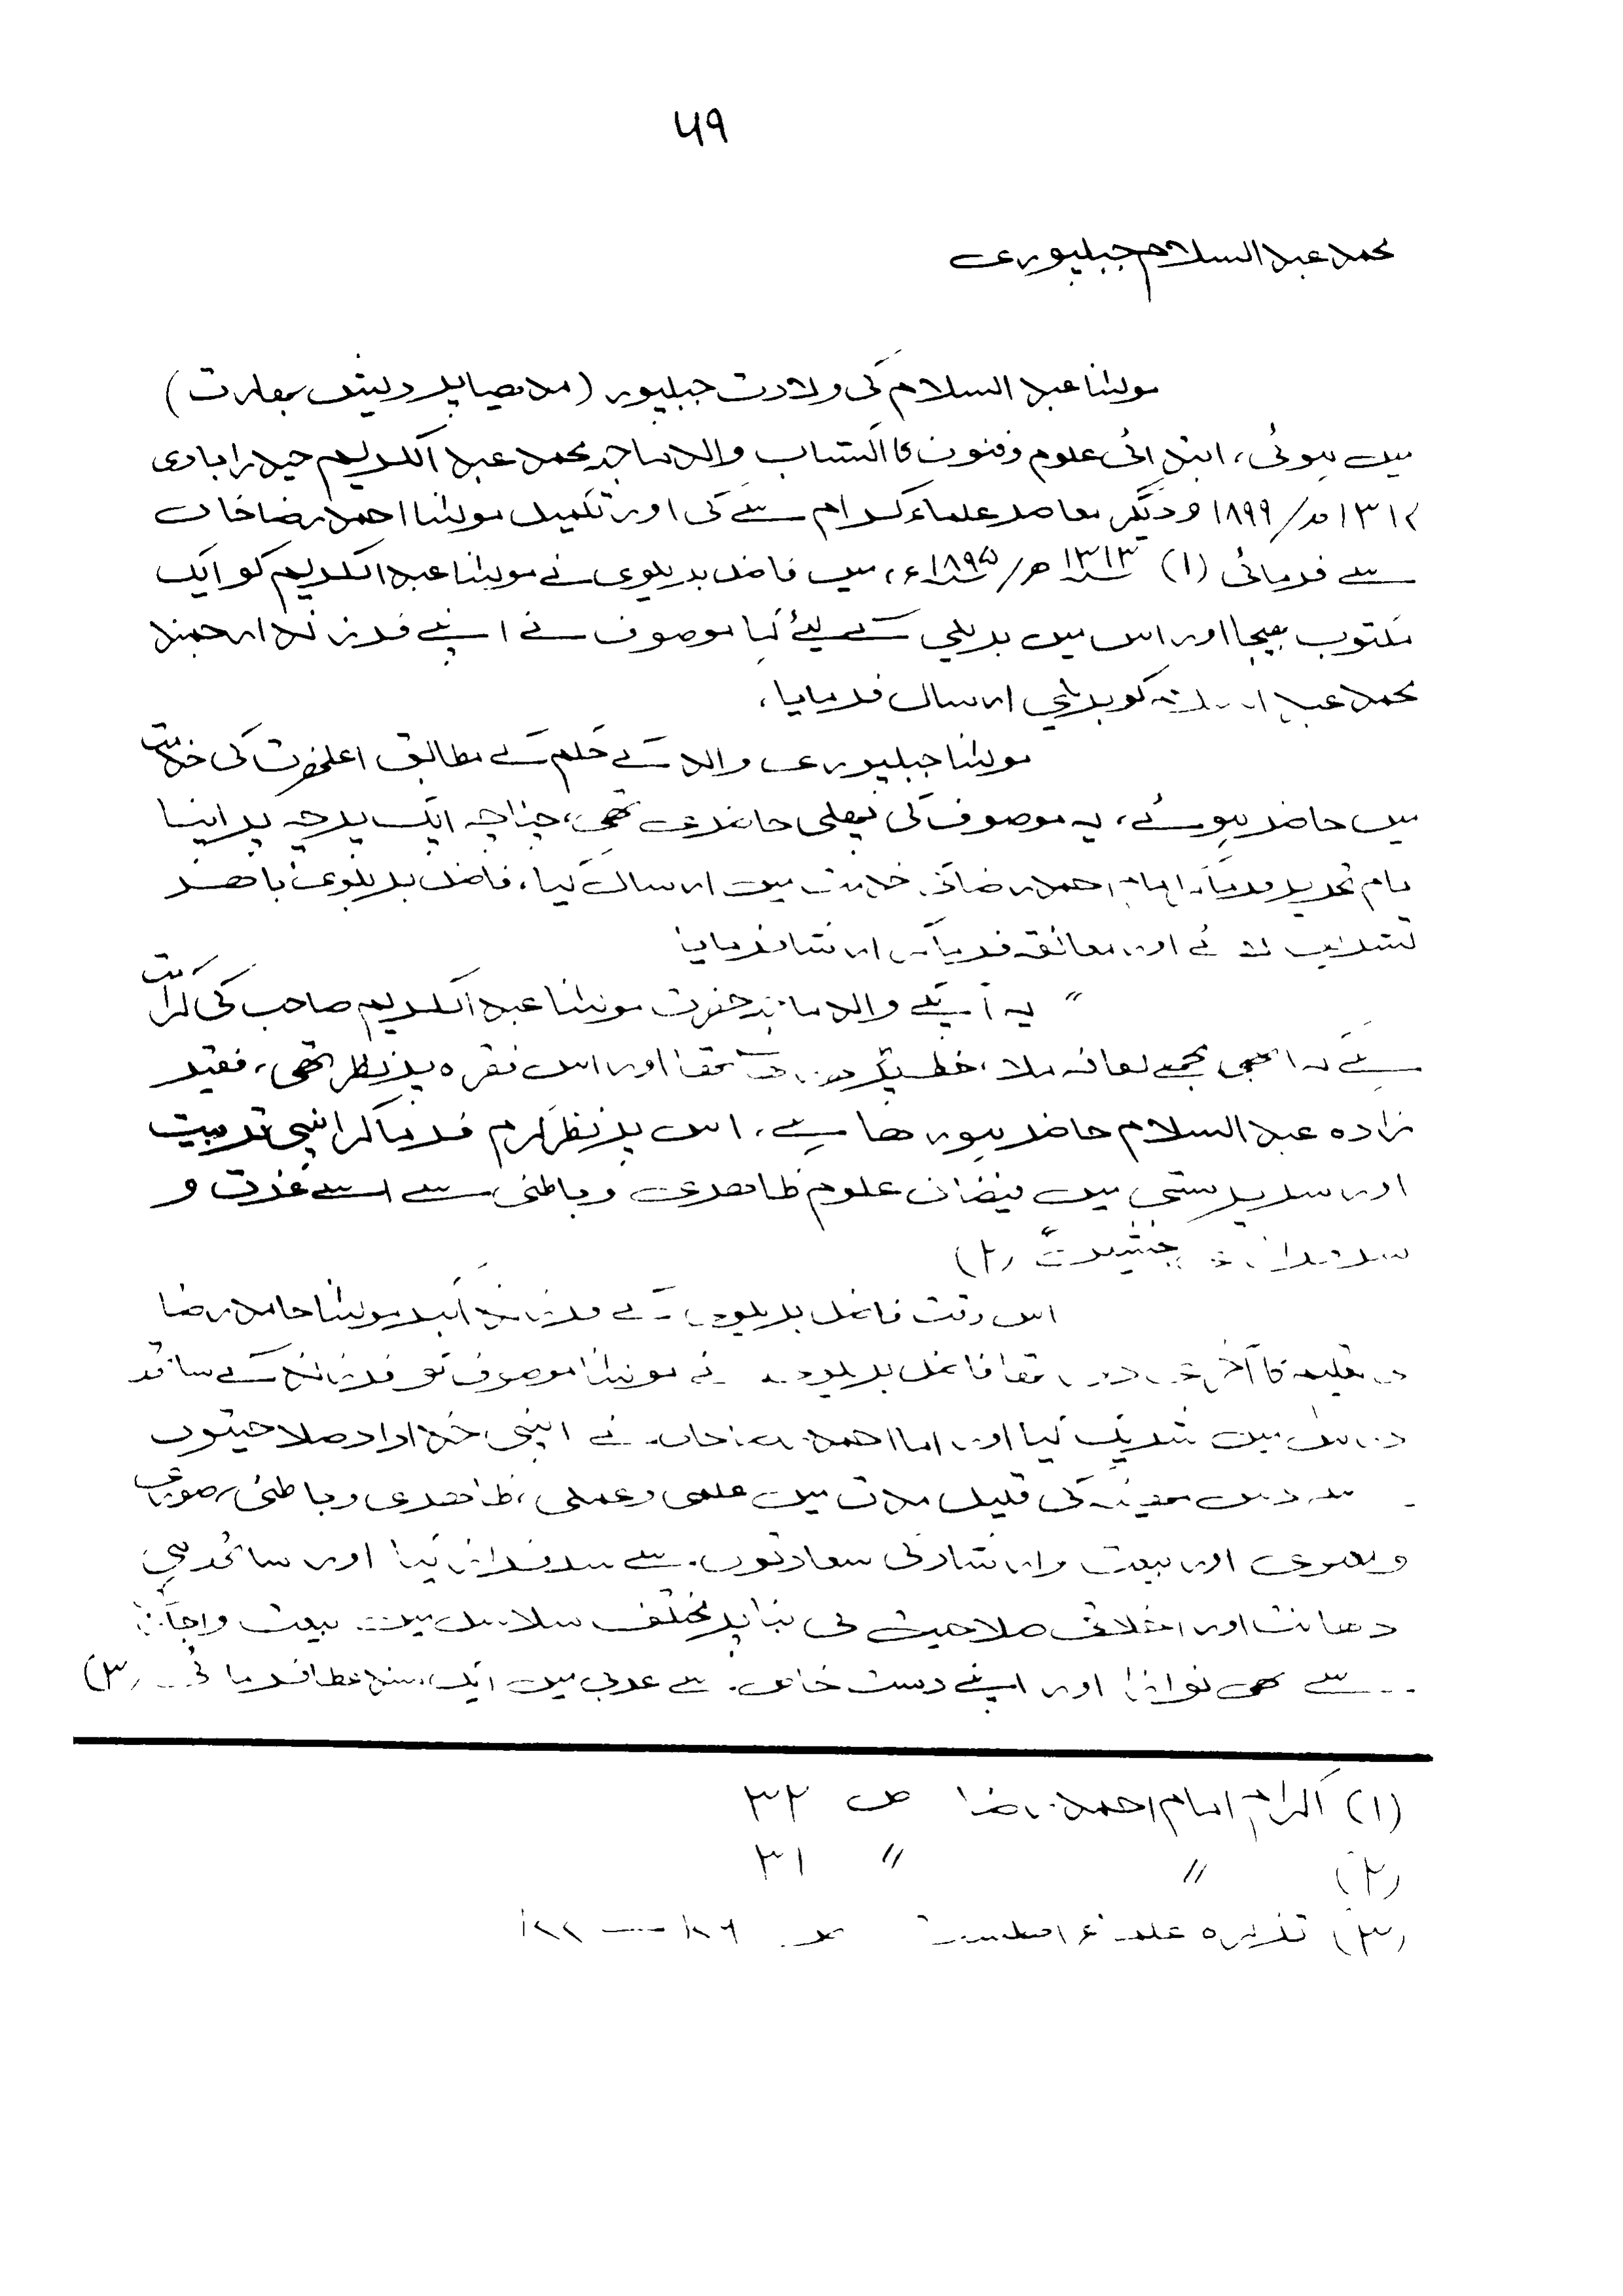 ۵۹
محمد عبد السلام جبلپوری
مولٰنا عبد السلام کی ولادت جبلپور (مدھیا پردیش بھارت)
میں ہوئی، ابتدائی علوم وفنون کا اکتساب والد ماجد محمد عبد الکریم حیدرابادی
۱۳۱۷ھ/۱۸۹۹ و دیگر معاصر علماء کرام سے کی اور تکمیل مولٰنا احمد رضا خاں
سے فرمائی (۱) ۱۳۱۳ھ/۱۸۹۵ء، میں فاضل بریلوی نے مولٰنا عبد الکریم کو ایک
مکتوب بھیجا اور اس میں بریلی کے لیئے کہا موصوف نے اپنے فرزند ارجمند
محمد عبد کو بریلی ارسال فرمایا،
مولٰنا جبلپوری والد کے حکم کے مطابق اعلٰحضرت کی خدمت
میں حاضر ہوئے، یہ موصوف کی پہلی حاضری تھی، چناچہ ایک پرچہ پر اپنا
نام تحریر فرماکر امام احمد رضا کی خدمت میں ارسال کیا، فاضل بریلوی باھر
تشریف لائے اور معانقہ فرماکر ارشاد فرمایا
" یہ آپکے والد ماجد حضرت مولٰنا عبد الکریم صاحب کی کرامت
ہے کہ ابھی مجھے لفافہ ملا، خط پڑھ رھا تھا اور اس فقرہ پر نظر تھی، فقیر
زادہ عبد السلام حاضر ہورھا ہے، اس پر نظر کرم فرماکر اپنی تربیت
اور سرپرستی میں فیضان علوم ظاھری وباطنی سے اسے عزت و
(۲)
اس وقت فاضل بریلوی کے فرزند اکبر مولٰنا حامد رضا
کا آخری دور تھا فاضل بریلوی نے مولٰنا موصوف کو فرزند کے ساتھ
درس میں شریک کیا اور احمد رضا خاں نے اپنی خدا داد صلاحیتوں
کی قلیل مدت میں علمی وعملی، ظاھری وباطنی، صوری
ومعنوی اور بیعت وارشاد کی سعادتوں سے سرفراز کیا اور ساتھ ہی
دھانت اور اخلاق صلاحیت کی بنا پر مختلف سلاسل میں بیعت واجازت
سے بھی نوازا اور اپنے دست خاص سے عربی میں ایک سند عطا فرمائی (۳)
(۱) اکرام امام احمد رضا ص ۳۲
(۲) " " ۳۱
(۳) تذکرہ علماء اھلسنت ص